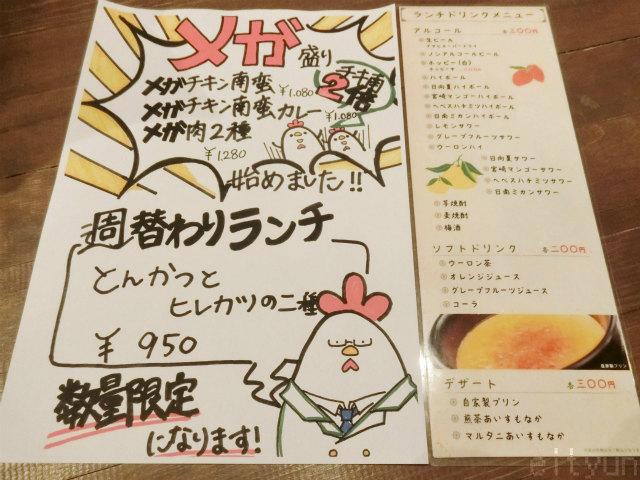 メガ盛り
メガチキン南蛮 ¥1,080
メガチキン南蛮カレー ¥1,080
メガ肉2種
¥1,280
2倍
始めました!!
週替わりランチ
とんかつと
ヒレカツの二種
¥ 950
数量限定
になります!
ランチドリンクメニュー
アルコール 各三〇〇円
生ビール
ノンアルコールビール
ホッピー(白)
ハイボール
日向夏ハイボール
宮崎マンゴーハイボール
ヘベスハチミツハイボール
日南ミカンハイボール
レモンサワー
グレープフルーツサワー
ウーロンハイ
日向夏サワー
宮崎マンゴーサワー
ヘベスハチミツサワー
日南ミカンサワー
芋焼酎
麦焼酎
梅酒
ソフトドリンク 各二〇〇円
ウーロン茶
オレンジジュース
グレープフルーツジュース
コーラ
自家製プリン
デザート 各三〇〇円
自家製プリン
煎茶あいすもなか
マルタニあいすもなか